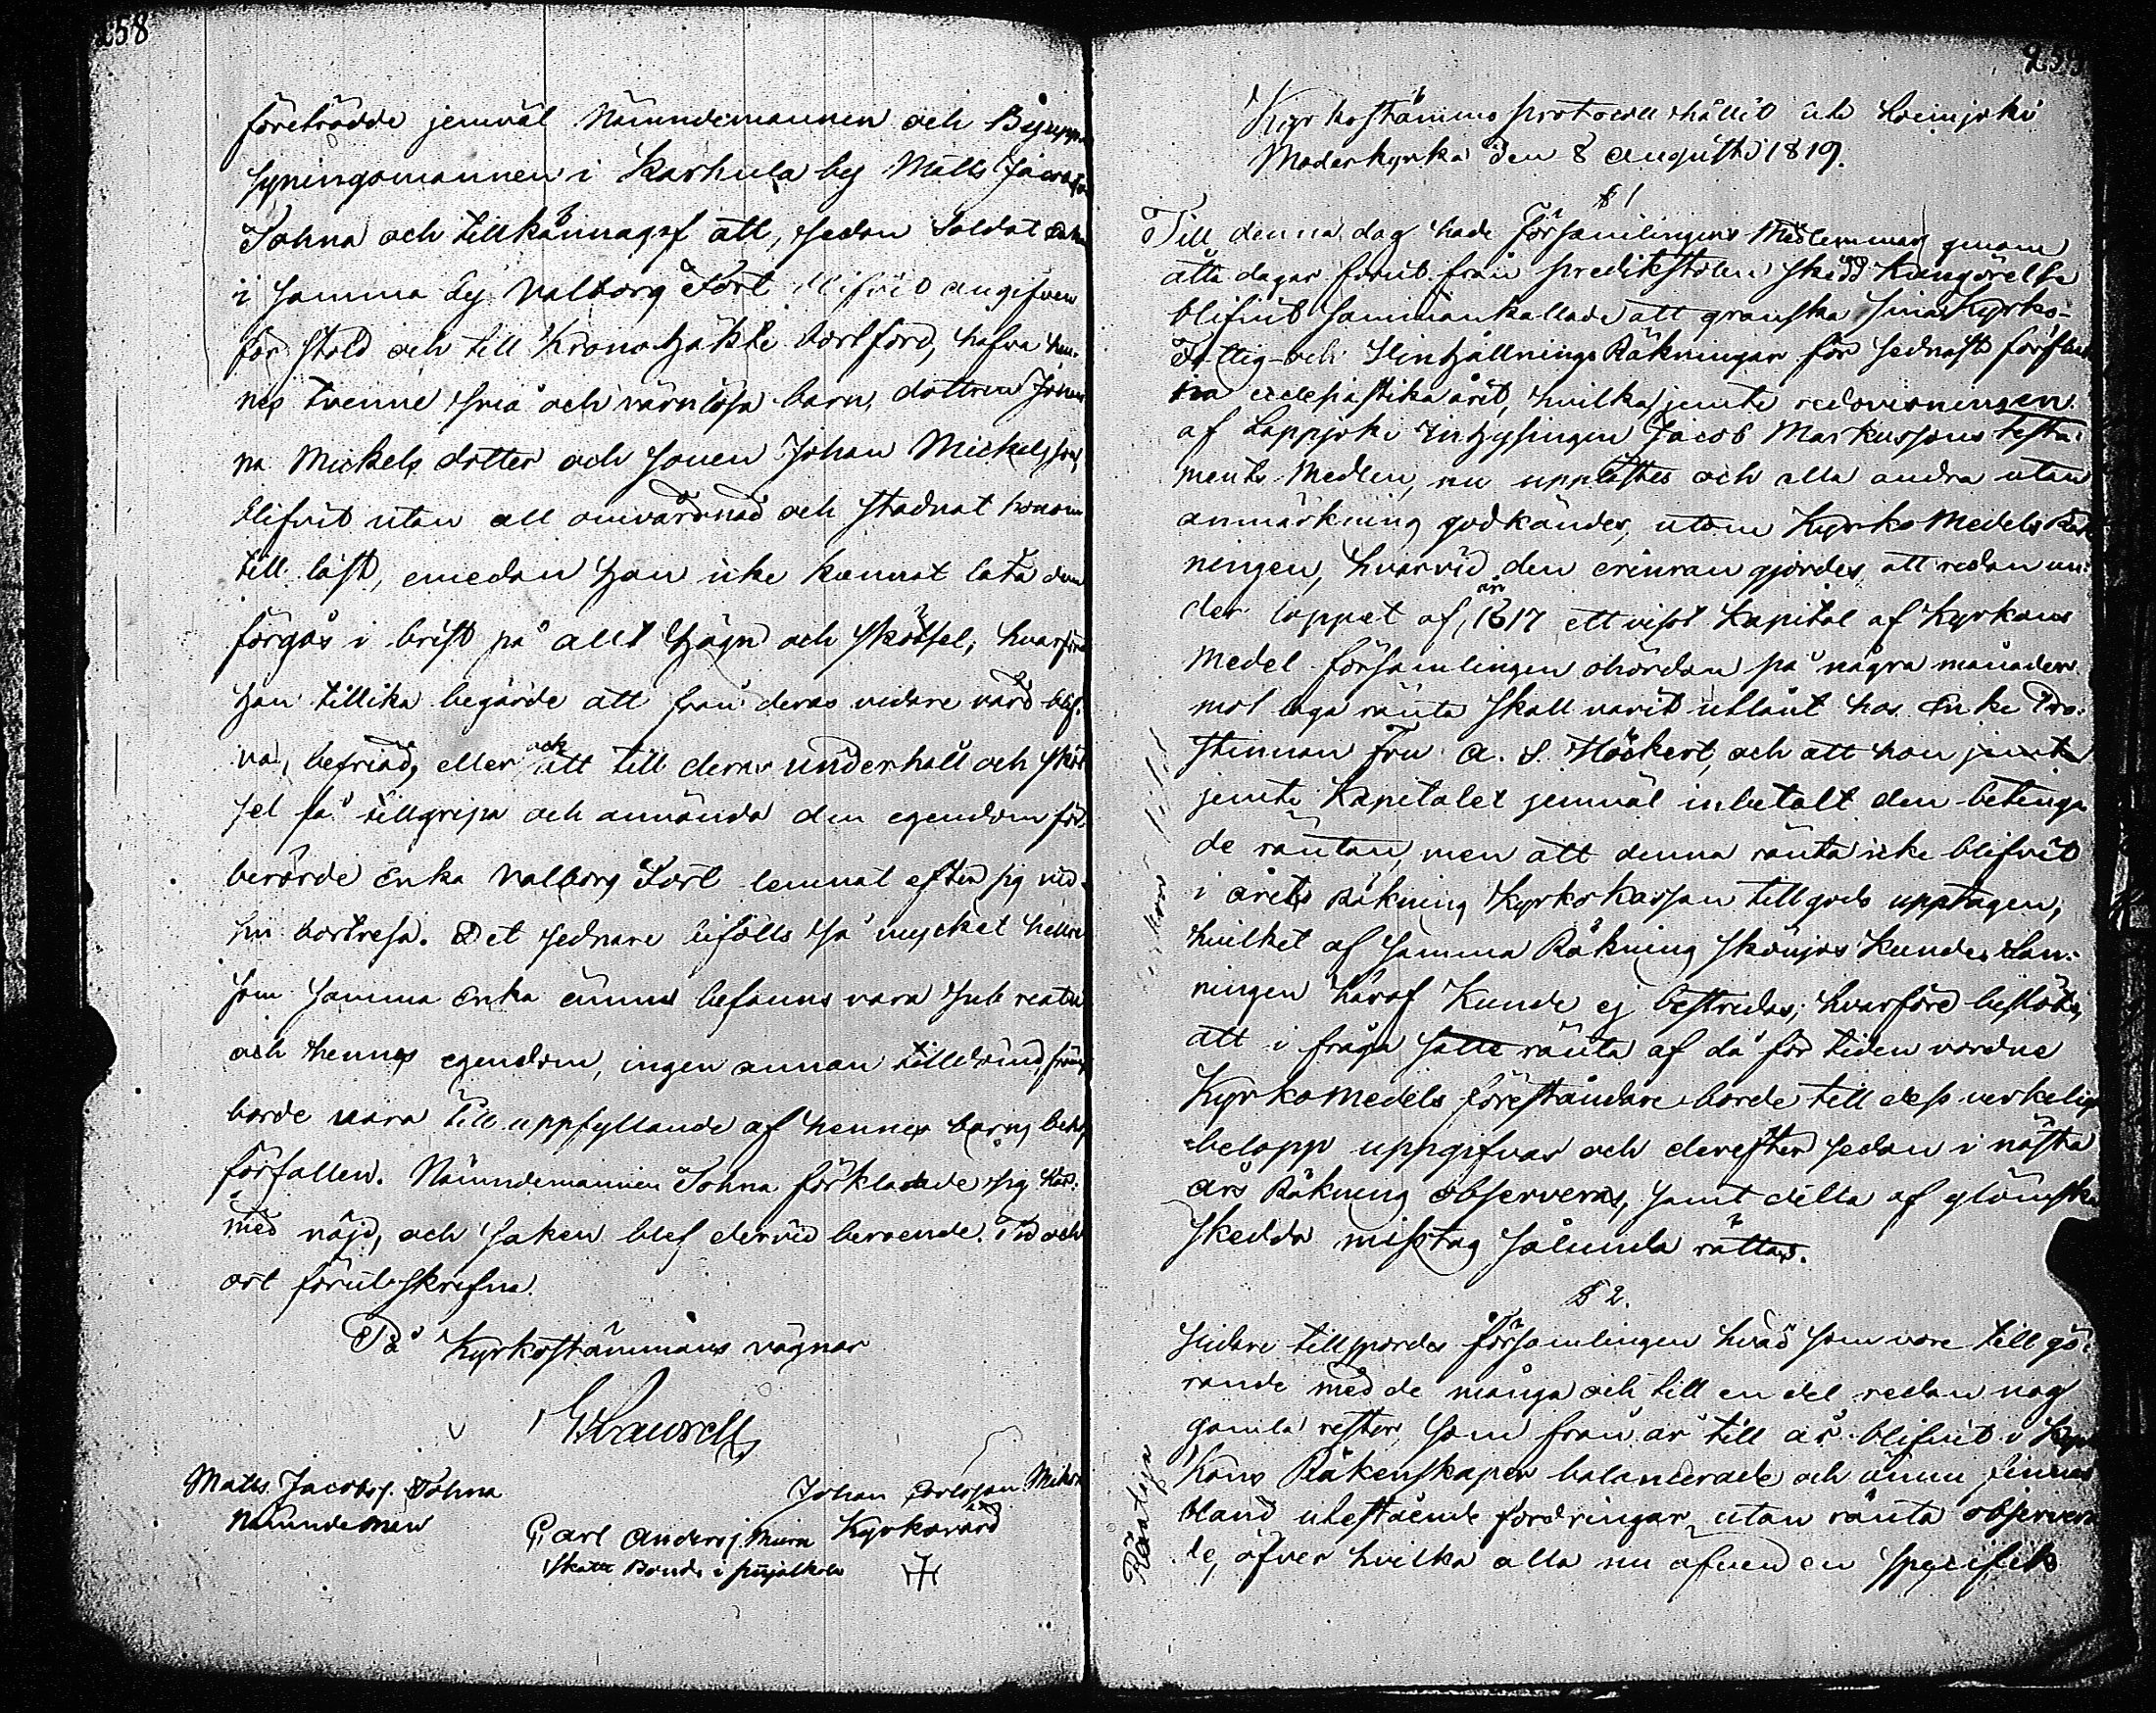 258
företrädde jemväl Nämndemannen och Byupp-
syningsmannen i Karhula by Matts Jacobss.
Tohna och tillkännagaf att, sedan Soldat Enkan
i samma by Valborg Fört blifvit angifven
för stöld och till Kronohäkte bortförd, hafva hen-
nes tvenne små och värnlösa barn, dottren Johan-
na Mickels dotter och sonen Johan Mickelsson,
blifvit utan all omvårdnad och stadnat honom
till last, emedan han icke kunnat låta dem
förgås i brist på allt hägn och skötsel; hvarföre
han tillika begärde att från deras vidare vård blif-
va, befriad, eller ock att till deras underhåll och sköt-
sel få tillgripa och använda den egendom för-
berörde Enka Valborg Fört lemnat efter sig vid
sin bortresa. Det sednare bifölls så mycket hellre
som samma Enka ännu befanns vara sub reatu
och hennes egendom, ingen annan tilldömd,
borde vara till uppfyllande af hennes barns behof
förfallen. Nämndemannen Tohna förklarade sig här-
med nöjd, och saken blef dervid beroende. Tid och
ort förut skrefna.
På Kyrkostämmans vägnar
Matts Jacobss. Tohna
Nämndeman
Johan
Carl Anderss. Kyrkovärd
Skatte Bonde i
259
Kyrkostämmo protocoll hållit uti Heinjoki
Moderkyrka den 8 Augusti 1819.
§ 1
Till denna dag hade Församlingens Medlemmar genom
åtta dagar förut från predikstolen skedd Kungörelse
blifvit sammankallade att granska sina Kyrko-
Fattig- och Inhyllnings Räkningar för sednast förflut-
na ecclesiastika årit, hvilka, jemte redovisningen
af Lappjoki Inhysingen Jacob Markussons testa-
ments Medlen, nu upplästes och alla andra utan
anmärkning godkändes, utom Kyrko Medels Räk-
ningen, hvarvid den erinran gjordes, att redan un-
der loppet af år 1817 ett visst Kapital af Kyrkans
Medel församlingen ohördan på några månader
mot laga ränta skall varit utlånt hos Enke Pro-
stinnan Fru A. S. Höckert, och att hon jemte
jemte Kapitalet jemväl inbetalt den betinga-
de räntan, men att denna ränta icke blifvit
i årets Räkning Kyrkokassan tillgodo upptagen,
hvilket af samma Räkning skönjas Kunde. San-
ningen häraf Kunde ej bestridas; hvarföre beslöts,
att i fråga satte ränta af då för tiden vordne
Kyrko Medels föreståndare borde till dess verkeliga
belopp uppgifvas och derefter sedan i nästa
års Räkning observeras, samt detta af glömska
skedda misstag sålunda rättas.
§ 2.
Vidare tillspordes församlingen hvad som vore till gö-
rande med de många och till en del redan nog
gamla rester, som från år till år blifvit i Kyr-
kans Räkenskaper balancerade och ännu finnas
bland utestående fordringar utan ränta observera-
de, öfver hvilka alla nu äfven en specifik